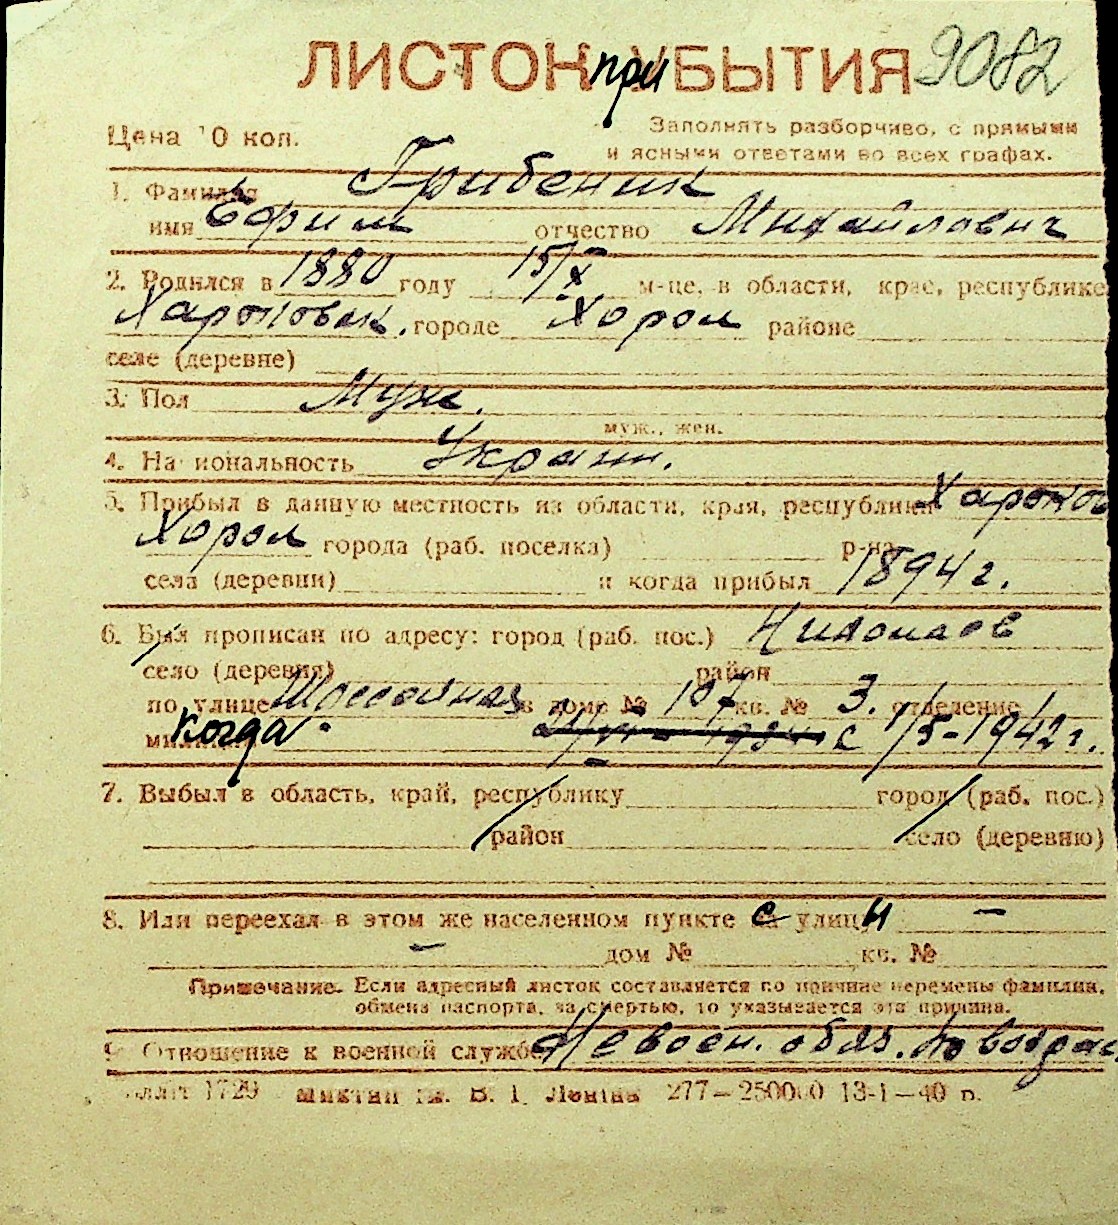 ЛИСТОК при УБЫТИЯ 9082
Цена 10 коп.
Заполнять разборчиво, с прямыми
и ясными ответами во всех графах.
1. Фамилия Грибеник
имя Ефим отчество Михайлович
2. Родился в 1880 году 15/X м-це, в области, крае, республике
Харьковск. городе Хорол районе
селе (деревне)
3. Пол Муж.
муж., жен.
4. Национальность Украин.
5. Прибыл в данную местность из области, края, республики Харьков
Хорол города (раб. поселка) р-на
села (деревни) и когда прибыл 1894 г.
6. Был прописан по адресу: город (раб. пос.) Николаев
село (деревня) район
по улице Шоссейная в доме № 107 кв. № 3. отделение
милиции когда с 1/5-1942 г.
7. Выбыл в область, край, республику город (раб. пос.)
район село (деревню)
8. Или переехал в этом же населенном пункте с улицы –
– дом № кв. №
Примечание. Если адресный листок составляется по причине перемены фамилии,
обмена паспорта, за смертью, то указывается эта причина.
9. Отношение к военной службе Невоен. обяз. по возрас
1729 В. І. Леніна 277–250000 13-1–40 р.